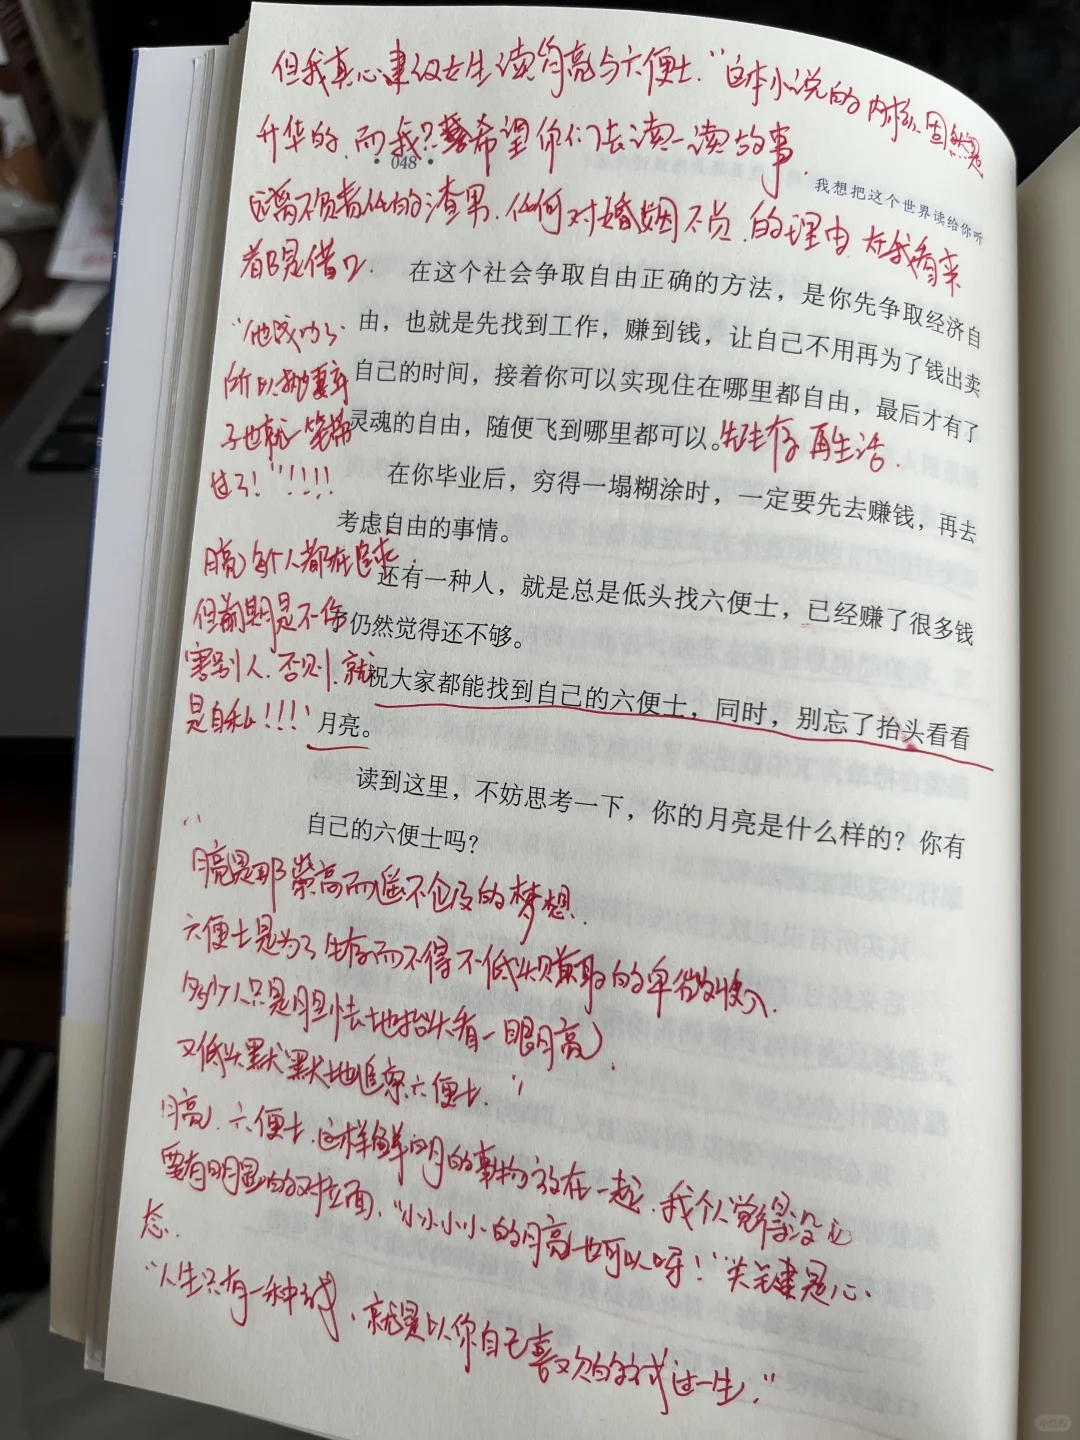 但我真心建议女生读月亮与六便士."这本小说的内核固然是
升华的.而我只希望你们去读一读故事.
· 048 ·
我想把这个世界读给你听
远离不负责任的渣男.任何对婚姻不负.的理由.在我看来
都是借口.
在这个社会争取自由正确的方法，是你先争取经济自
由，也就是先找到工作，赚到钱，让自己不用再为了钱出卖
自己的时间，接着你可以实现住在哪里都自由，最后才有了
灵魂的自由，随便飞到哪里都可以。先生存 再生活.
"他成功了.
所以抛妻弃
子也就一笔带
过了！"！！！！
在你毕业后，穷得一塌糊涂时，一定要先去赚钱，再去
考虑自由的事情。
月亮每个人都在追求.
但前期是不伤
害别人.否则.就
是自私！！！
还有一种人，就是总是低头找六便士，已经赚了很多钱
仍然觉得还不够。
祝大家都能找到自己的六便士，同时，别忘了抬头看看
月亮。
读到这里，不妨思考一下，你的月亮是什么样的？你有
自己的六便士吗？
"月亮是那崇高而遥不可及的梦想.
六便士是为了生存而不得不低头赚取的卑微收入.
多少人只是胆怯地抬头看一眼月亮.
又低头默默地追索六便士."
月亮.六便士.这样鲜明的事物放在一起.我个人觉得没必
要有明显的对立面."小小小小的月亮也可以呀！"关键是心
态.
"人生只有一种成.就是以你自己喜欢的方式过一生."